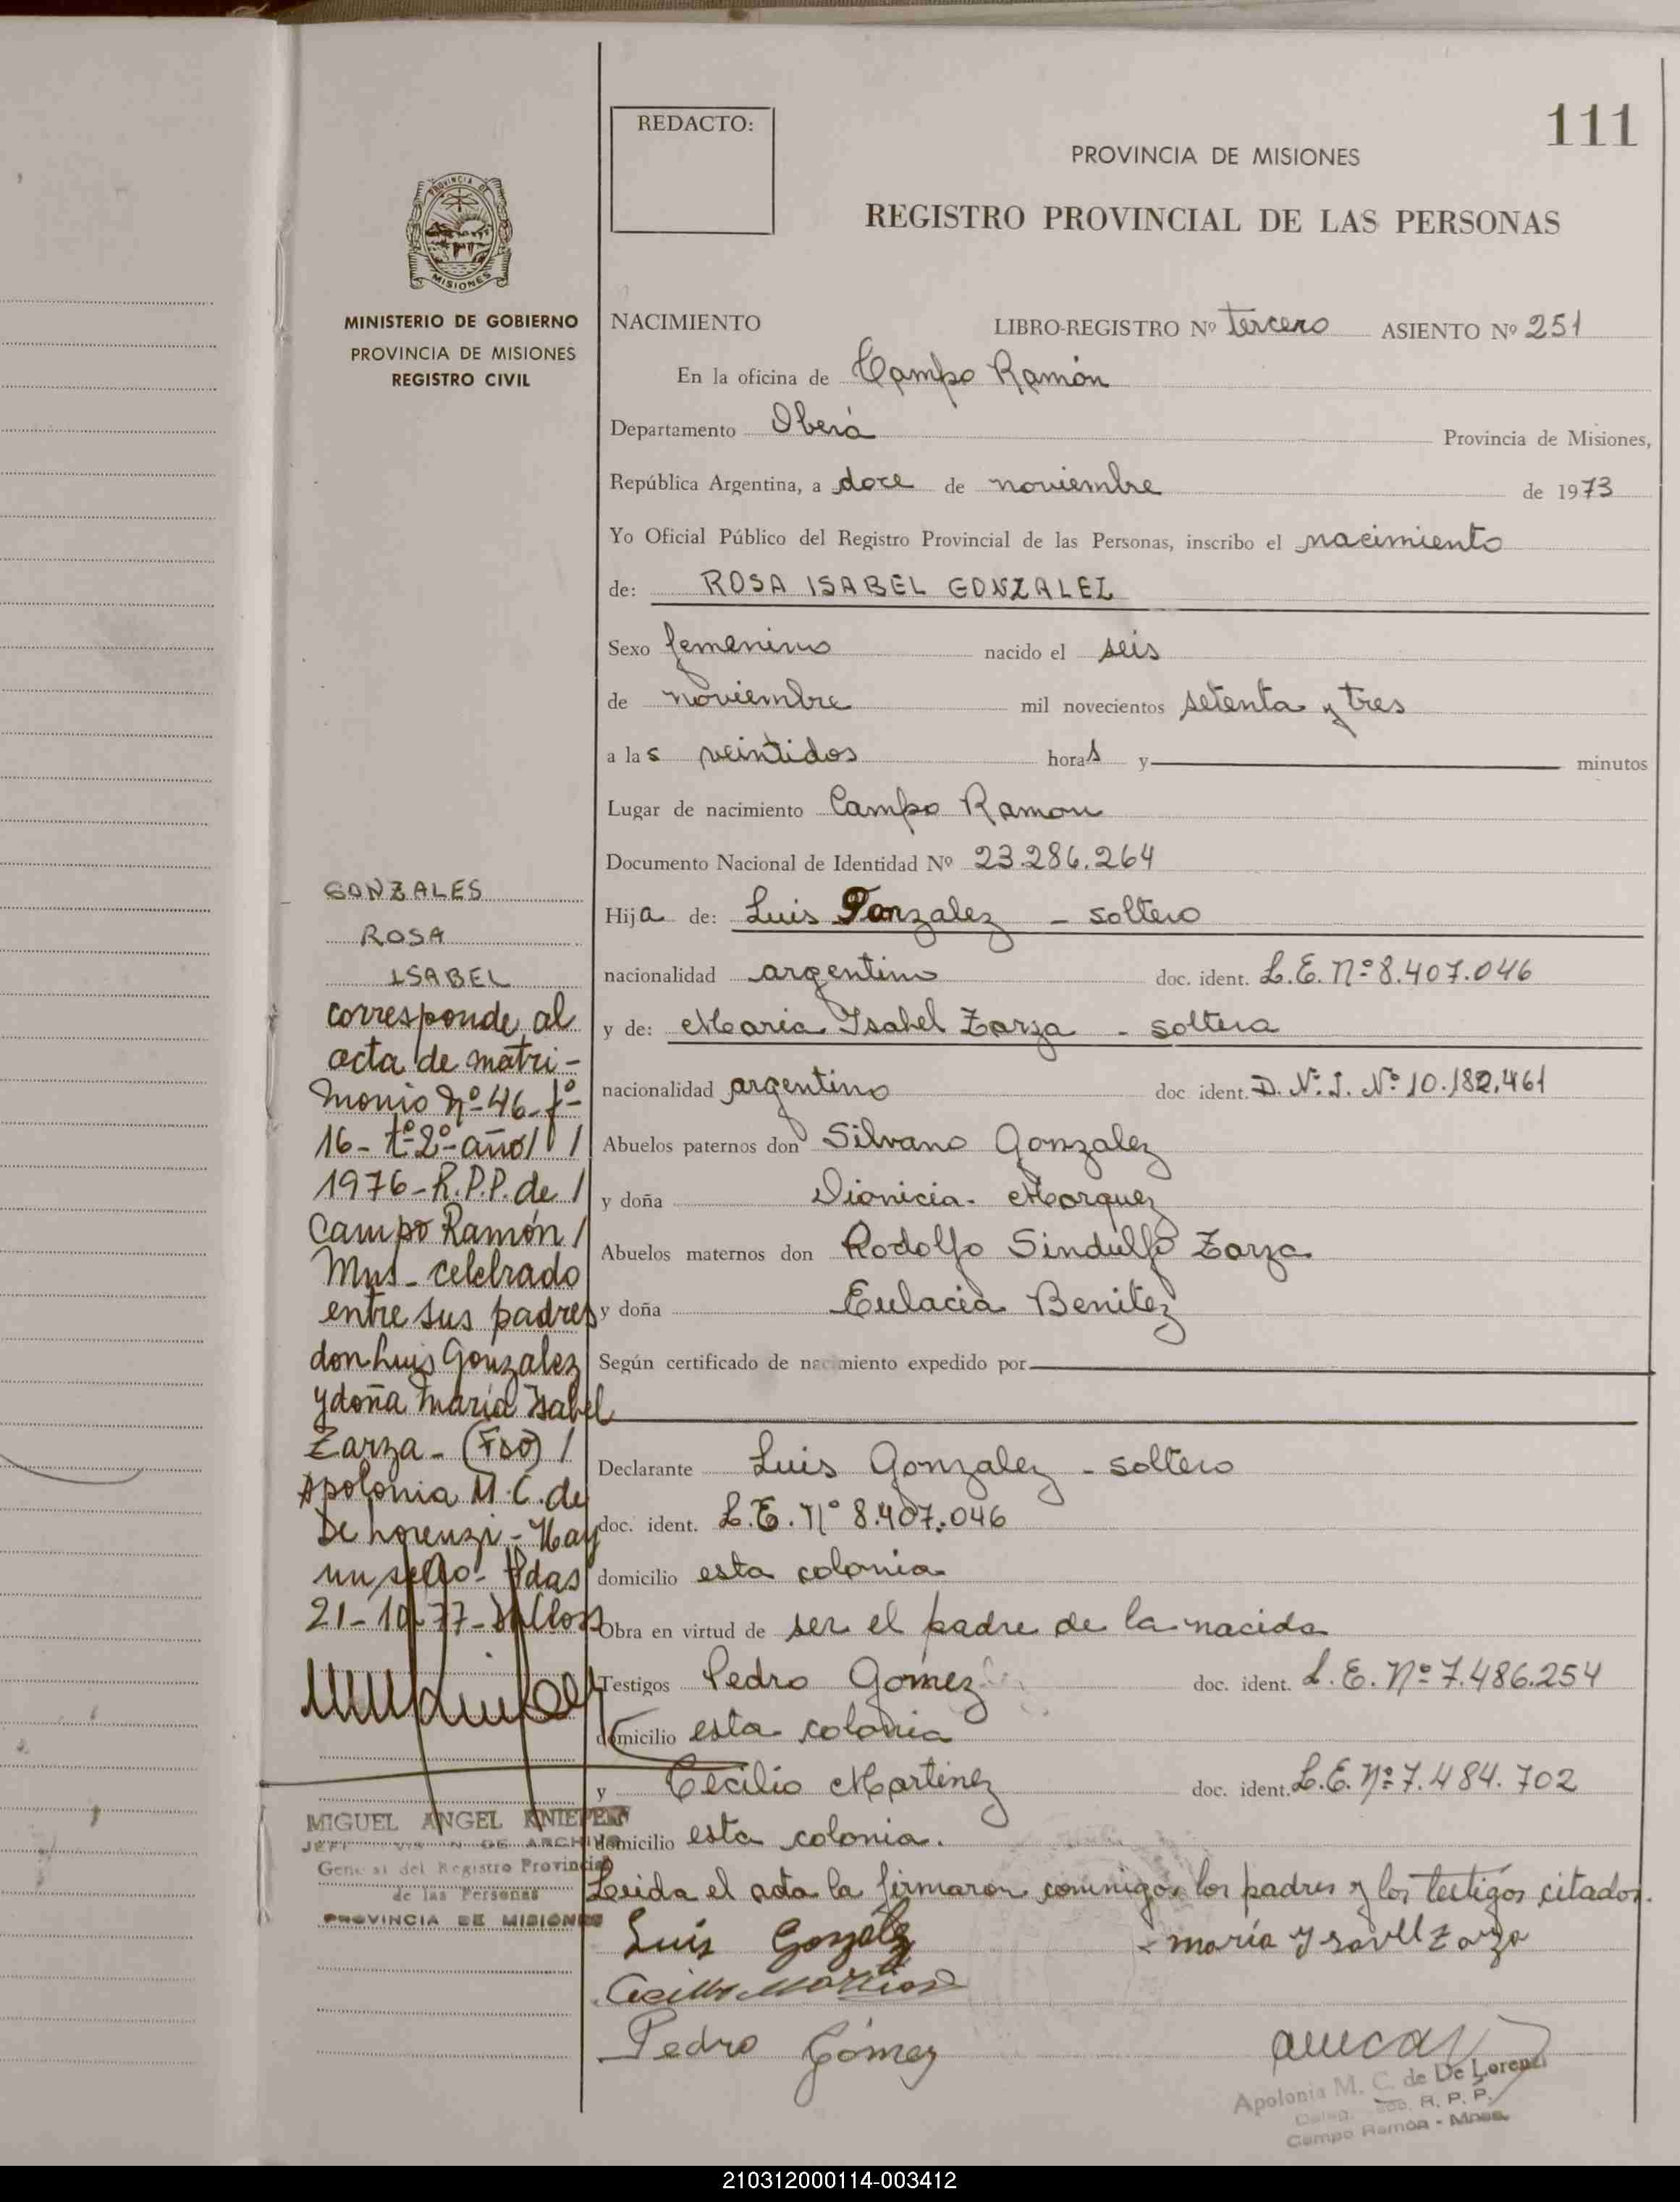 111
REDACTO:
PROVINCIA DE MISIONES
REGISTRO PROVINCIAL DE LAS PERSONAS
PROVINCIA DE
MISIONES
MINISTERIO DE GOBIERNO
PROVINCIA DE MISIONES
REGISTRO CIVIL
NACIMIENTO LIBRO-REGISTRO Nº tercero ASIENTO Nº 251
En la oficina de Campo Ramón
Departamento Oberá Provincia de Misiones,
República Argentina, a doce de noviembre de 1973
Yo Oficial Público del Registro Provincial de las Personas, inscribo el nacimiento
de: ROSA ISABEL GONZALEZ
Sexo femenino nacido el seis
de noviembre mil novecientos setenta y tres
a las veintidos horas y minutos
Lugar de nacimiento Campo Ramon
Documento Nacional de Identidad Nº 23.286.264
Hija de: Luis Gonzalez - soltero
nacionalidad argentino doc. ident. L.E. Nº 8.407.046
y de: Maria Isabel Zarza - soltera
nacionalidad argentino doc ident. D.N.I. Nº 10.182.461
Abuelos paternos don Silvano Gonzalez
y doña Dionicia Marquez
Abuelos maternos don Rodolfo Sindulfo Zarza
y doña Eulacia Benitez
Según certificado de nacimiento expedido por
Declarante Luis Gonzalez - soltero
doc. ident. L.E. Nº 8.407.046
domicilio esta colonia
Obra en virtud de ser el padre de la nacida
Testigos Pedro Gómez doc. ident. L.E. Nº 7.486.254
domicilio esta colonia
y Cecilio Martinez doc. ident. L.E. Nº 7.484.702
domicilio esta colonia.
Leida el acta la firmaron conmigo, los padres y los testigos citados.
Luis Gonzalez maría Ysavel Zarza
Cecilio Martinez
Pedro Gómez
Apolonia M. C. de De Lorenzi
R. P. P.
Campo Ramón - Mnes.
GONZALES
ROSA
ISABEL
corresponde al
acta de matri-
monio Nº 46- fº
16- tº 2º- año /
1976- R.P.P. de /
Campo Ramón /
Mns- celebrado
entre sus padres
don Luis Gonzalez
y doña María Isabel
Zarza- (Fdo) /
Apolonia M. C. de
De Lorenzi- Hay
un sello- Pdas
21-10-77-
MIGUEL ANGEL KNIEPER
DE ARCHIVO
General del Registro Provincial
de las Personas
PROVINCIA DE MISIONES
210312000114-003412